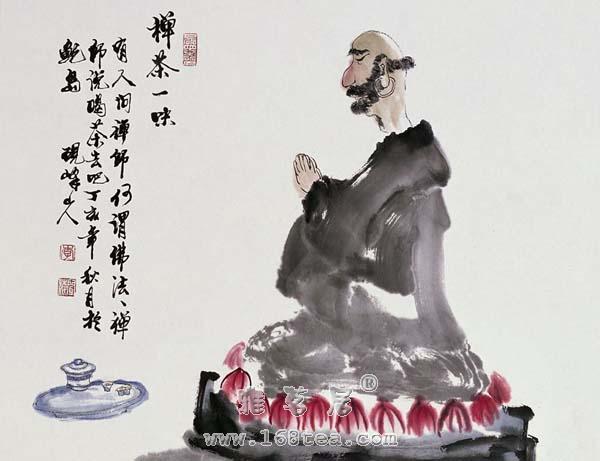 禅茶一味
有人问禅师何谓佛法、禅
师说喝茶去吧丁亥年秋月於
鲍岛 砚峰山人
雅茗居®
www.168tea.com